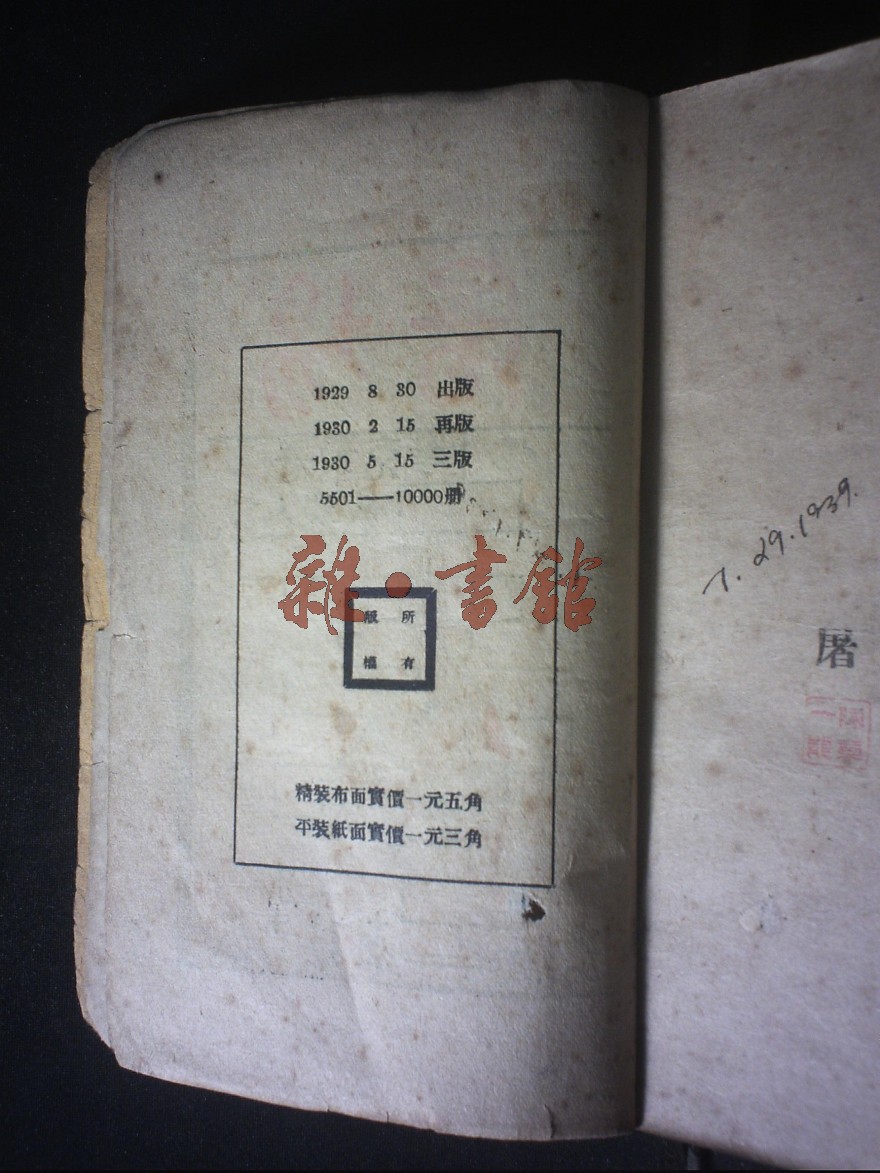 1929 8 30 出版
1930 2 15 再版
1930 5 15 三版
5501——10000册
雜·書館
版權所有
精裝布面實價一元五角
平裝紙面實價一元三角
7.29.1939.
屠